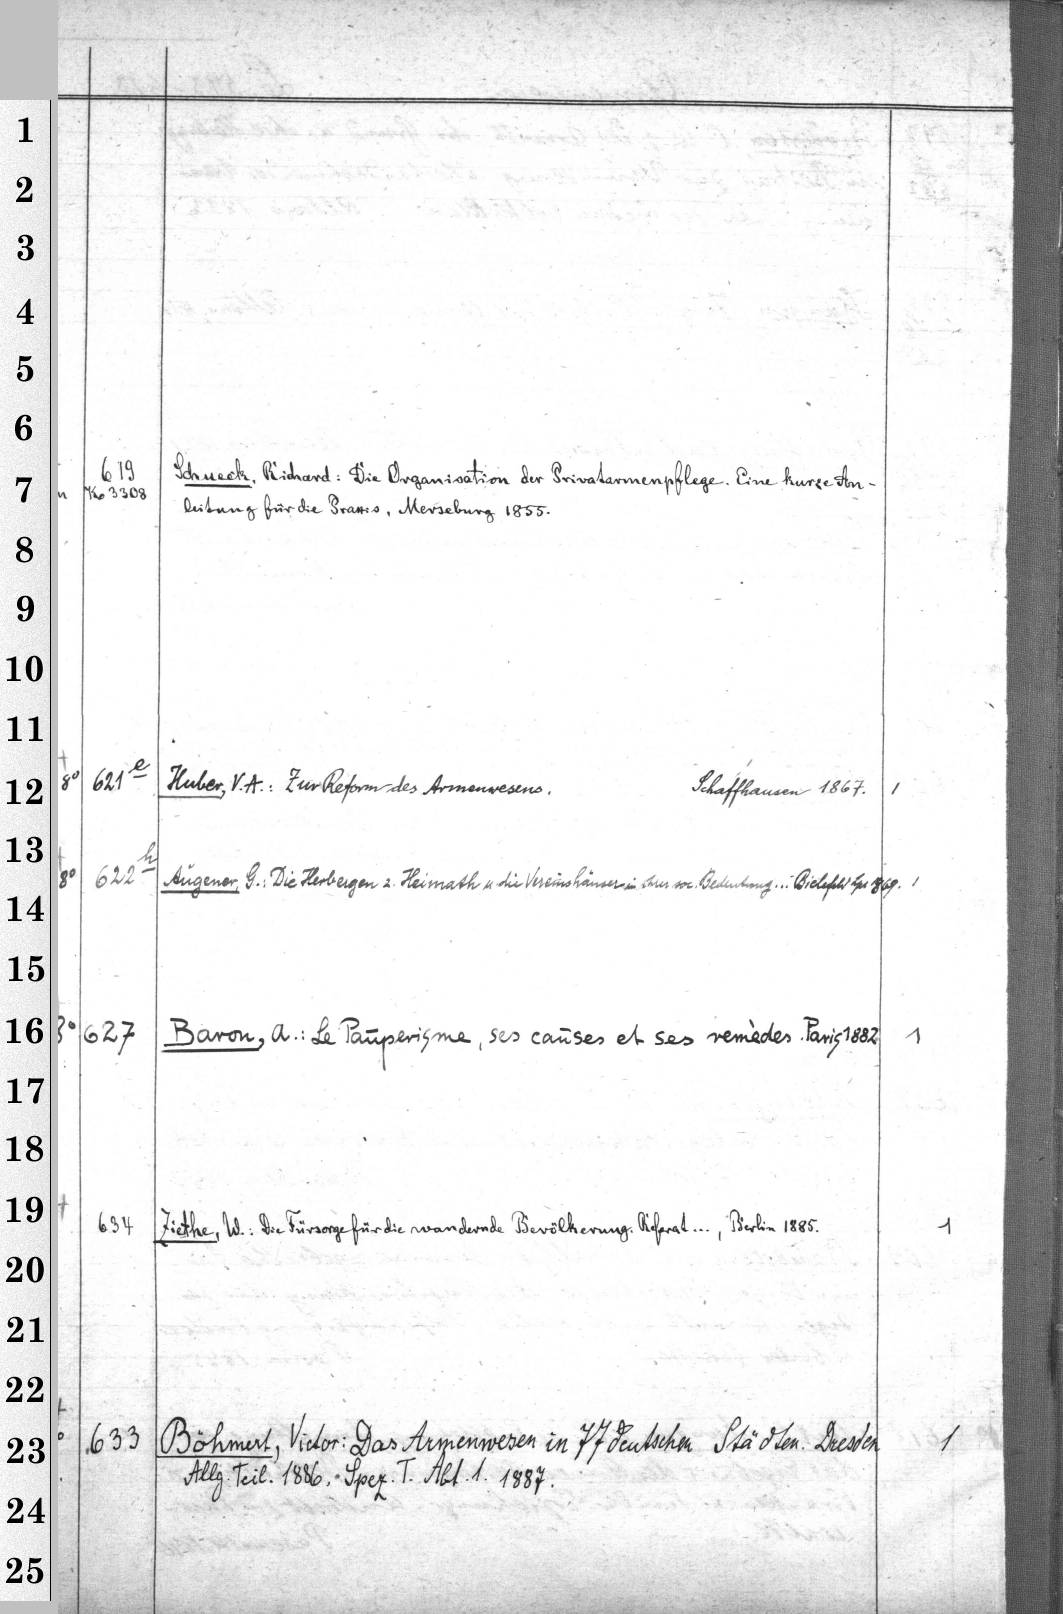 1
2
3
4
5
6
619 Schueck, Richard: Die Organisation der Privatarmenpflege. Eine kurze An-
7 3308
leitung für die Praxis, Merseburg 1855.
8
9
10
11
12 8° 621 e Huber, V. A.: Zur Reform des Armenwesens. Schaffhausen 1867. 1
13
8° 622 h Augener, G.: Die Herbergen z. Heimath u. die Vereinshäuser in ihrer soc. Bedeutung... Bielefeld Lpz 1869. 1
14
15
16 8° 627 Baron, A.: Le Paupérisme, ses causes et ses remèdes. Paris 1882 1
17
18
19
634 Ziethe, W.: Die Fürsorge für die wandernde Bevölkerung. Referat ..., Berlin 1885. 1
20
21
22
23 633 Böhmert, Victor: Das Armenwesen in 77 deutschen Städten. Dresden 1
Allg. Teil. 1886. - Spez. T. Abt. 1. 1887.
24
25